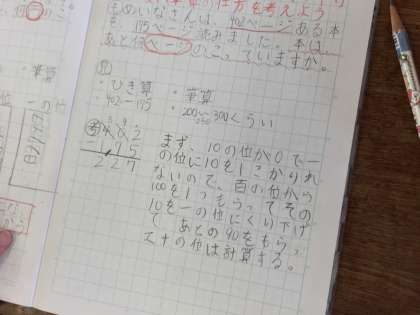 の仕方を考えよう
もめいなさんは、402ページある本
を、175ページ読みました。本は、
あと何ページのこっていますか。
・ひき算 ・筆算
・402-175 ・200~300くらい
402
-175
227
まず、10の位が0で一
の位に10を1つかりれ
ないので、百の位から
100を1つもらってその
10を一の位にくり下げ
て、あとの90をもらっ
て十の位は計算する。
筆算